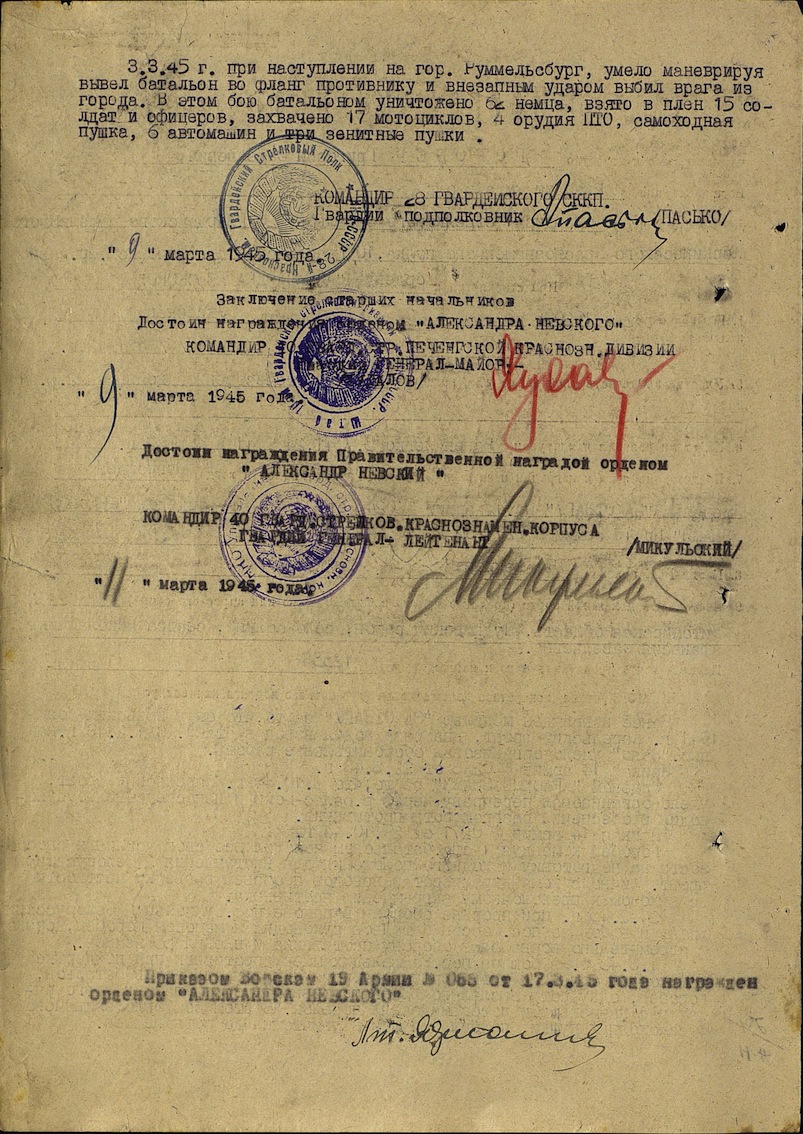 3.3.45 г. при наступлении на гор. Руммельсбург, умело маневрируя
вывел батальон во фланг противнику и внезапным ударом выбил врага из
города. В этом бою батальоном уничтожено немца, взято в плен 15 со-
лдат и офицеров, захвачено 17 мотоциклов, 4 орудия ПТО, самоходная
пушка, 6 автомашин и три зенитные пушки .
Гвардейский Стрелковый Полк
КОМАНДИР 28 ГВАРДЕЙСКОГО СККП.
Гвардии подполковник /ПАСЬКО/
" 9 " марта 1945 года.
Заключение старших начальников
Достоин награждения орденом "АЛЕКСАНДРА НЕВСКОГО"
КОМАНДИР ПЕЧЕНГСКОЙ КРАСНОЗН.ДИВИЗИИ
ГЕНЕРАЛ-МАЙОР-
" 9 " марта 1945 года
Достоин награждения Правительственной наградой орденом
" АЛЕКСАНДР НЕВСКИЙ "
КОМАНДИР 40 ГВАРД.СТРЕЛКОВ.КРАСНОЗНАМЕН.КОРПУСА
ГВАРДИИ ГЕНЕРАЛ- ЛЕЙТЕНАНТ
/МИКУЛЬСКИЙ/
"11 " марта 1945 года.
Приказом Войскам 19 Армии № от 17.3.45 года награжден
орденом "АЛЕКСАНДРА НЕВСКОГО"